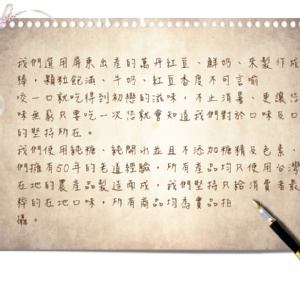 我們選用屏東出產的萬丹紅豆、鮮奶、來製作成
棒,顆粒飽滿、牛奶、紅豆香度不可言喻
咬一口就吃得到初戀的滋味,不止消暑、更讓您
味無窮只要吃一次您就會知道我們對於口味及口
的堅持所在。
我們使用純糖、純開水並且不添加糖精及色素、
們擁有50年的老道經驗,所有產品均只使用台灣
在地的農產品製造而成,我們堅持只給消費者最
粹的在地口味,所有商品均為實品拍
攝。